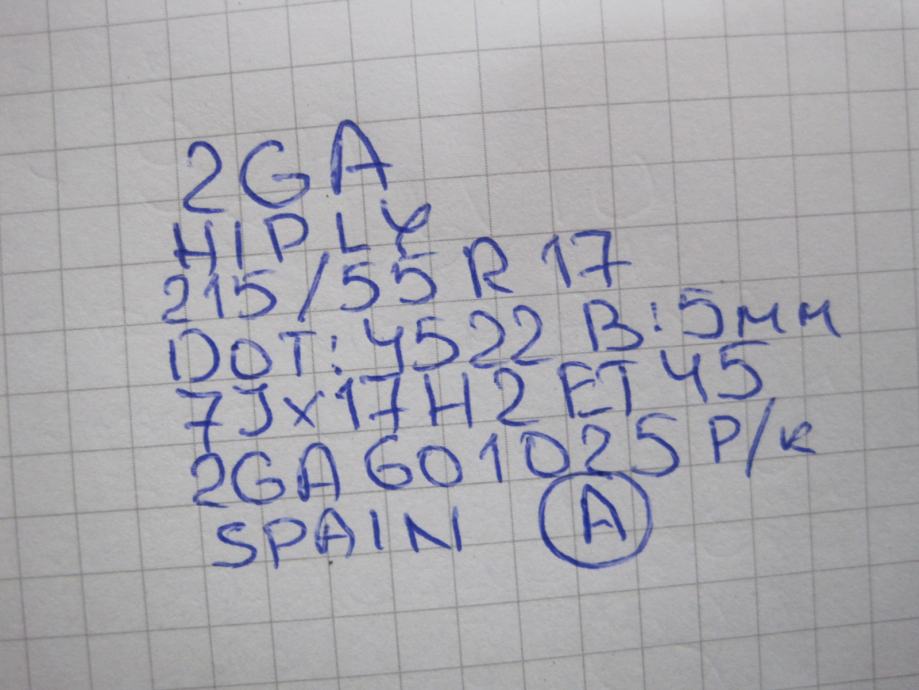 2GA
HIPLY
215/55 R 17
DOT: 4522 B: 5мм
7Jx17H2 ET 45
2GA 601025 P/к
SPAIN A